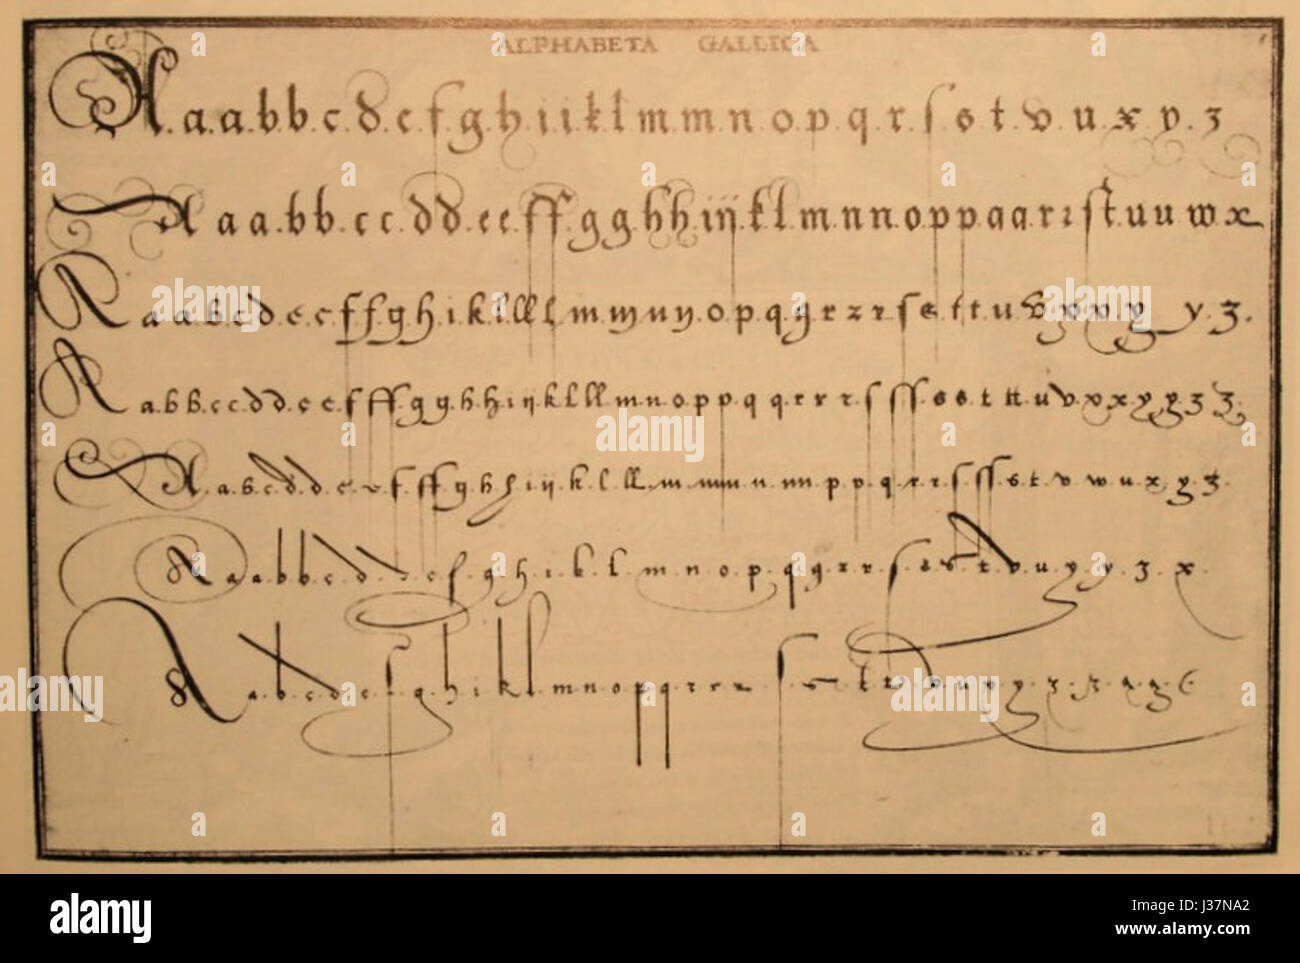 ALPHABETA GALLICA
A.a.a.b.b.c.d.e.f.g.h.i.i.k.l.m.m.n.o.p.q.r.ſ.s.t.v.u.x.y.z
A a.a.b.b.c c.d d.e e.f f.g g.h h.i ij.k l.m n n.o p p.q q.r r.ſ t.u u w x
A a a b c d e c f f g h i k l ll l m m n n o p q q r r r ſ s t t u v x y y z.
A a.b.b.c c.d d.e e.f.ff.g g.h h.i ij.k l.ll.m n o p p q q r r r.ſ ſſ.s s.t tt u v x x y y z z.
A.a.b.c d.d.e.e.f.ff.g h h i ij.k.l.ll.m.m n.nn.p p.q r r ſ ſſ.s t.v w u x.y.z.
A a.a.b.b.c.d.d.e ſ.g h.i.k.l.m.n.o.p q.g r r ſ s s t v u y y.z.x.
A a.b.c.d.e.ſ.g.h.i.k.l.m.n.o.p.q.r.r.r ſ s t t v u x y z
alamy
alamy
Image ID: J37NA2
www.alamy.com